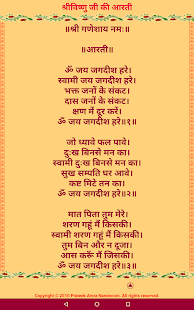 श्रीविष्णु जी की आरती
॥श्री गणेशाय नमः॥
॥आरती॥
ॐ जय जगदीश हरे।
स्वामी जय जगदीश हरे।
भक्त जनों के संकट।
दास जनों के संकट।
क्षण में दूर करें।
ॐ जय जगदीश हरे॥१॥
जो ध्यावे फल पावे।
दुःख बिनसे मन का।
स्वामी दुःख बिनसे मन का।
सुख सम्पति घर आवे।
कष्ट मिटे तन का।
ॐ जय जगदीश हरे॥२॥
मात पिता तुम मेरे।
शरण गहूं मैं किसकी।
स्वामी शरण गहूं मैं किसकी।
तुम बिन और न दूजा।
आस करूँ मैं जिसकी।
ॐ जय जगदीश हरे॥३॥
Copyright © 2010 Prateek Anna Narasimhan. All rights reserved.